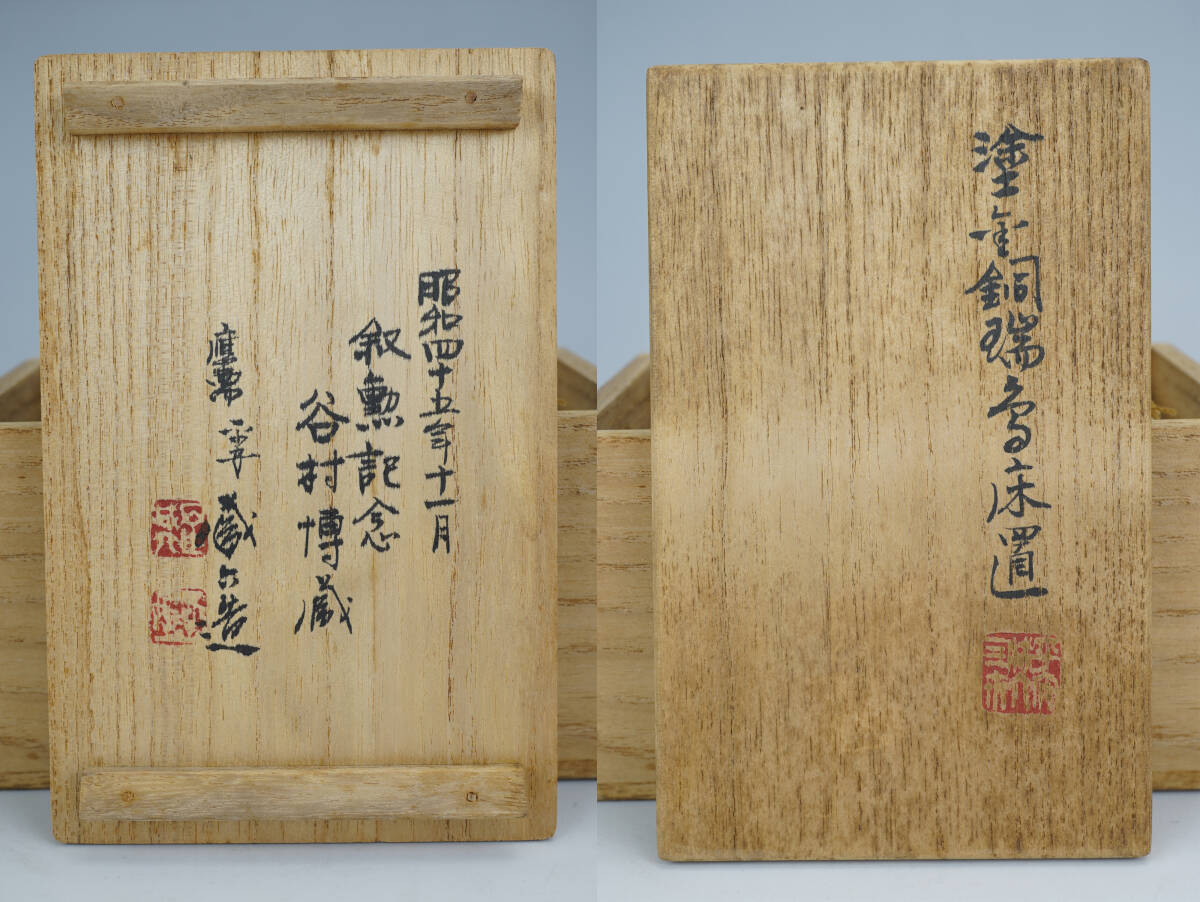 昭和四十五年十一月
叙勲記念
谷村博蔵
應需 平安
蔵六造
塗金銅瑞鳥床置